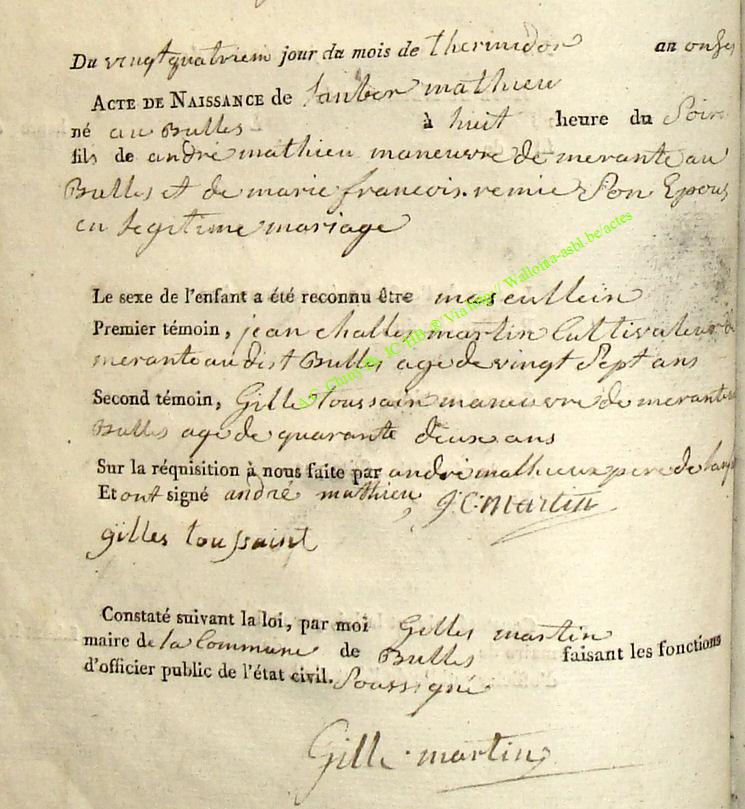 Du vingtquatriem jour du mois de thermidor an onze
ACTE DE NAISSANCE de lamber mathieu
né au Bulles à huit heure du Soir
fils de andré mathieu maneuvre de merante au
Bulles et de marie francois remie Son Epous
en legitime mariage
Le sexe de l'enfant a été reconnu être masculлein
Premier témoin, jean challes martin Cultivateur de
merante audist Bulles age de vingt Sept ans
Second témoin, Gille toussain maneuvre de merante
Bulles age de quarante deux ans
Sur la réquisition à nous faite par andré mathieux pere de
Et ont signé andré mathieu J C martin
gilles toussaint
Constaté suivant la loi, par moi Gilles martin
maire de la Commune de Bulles faisant les fonctions
d'officier public de l'état civil. Soussigné
Gille martin